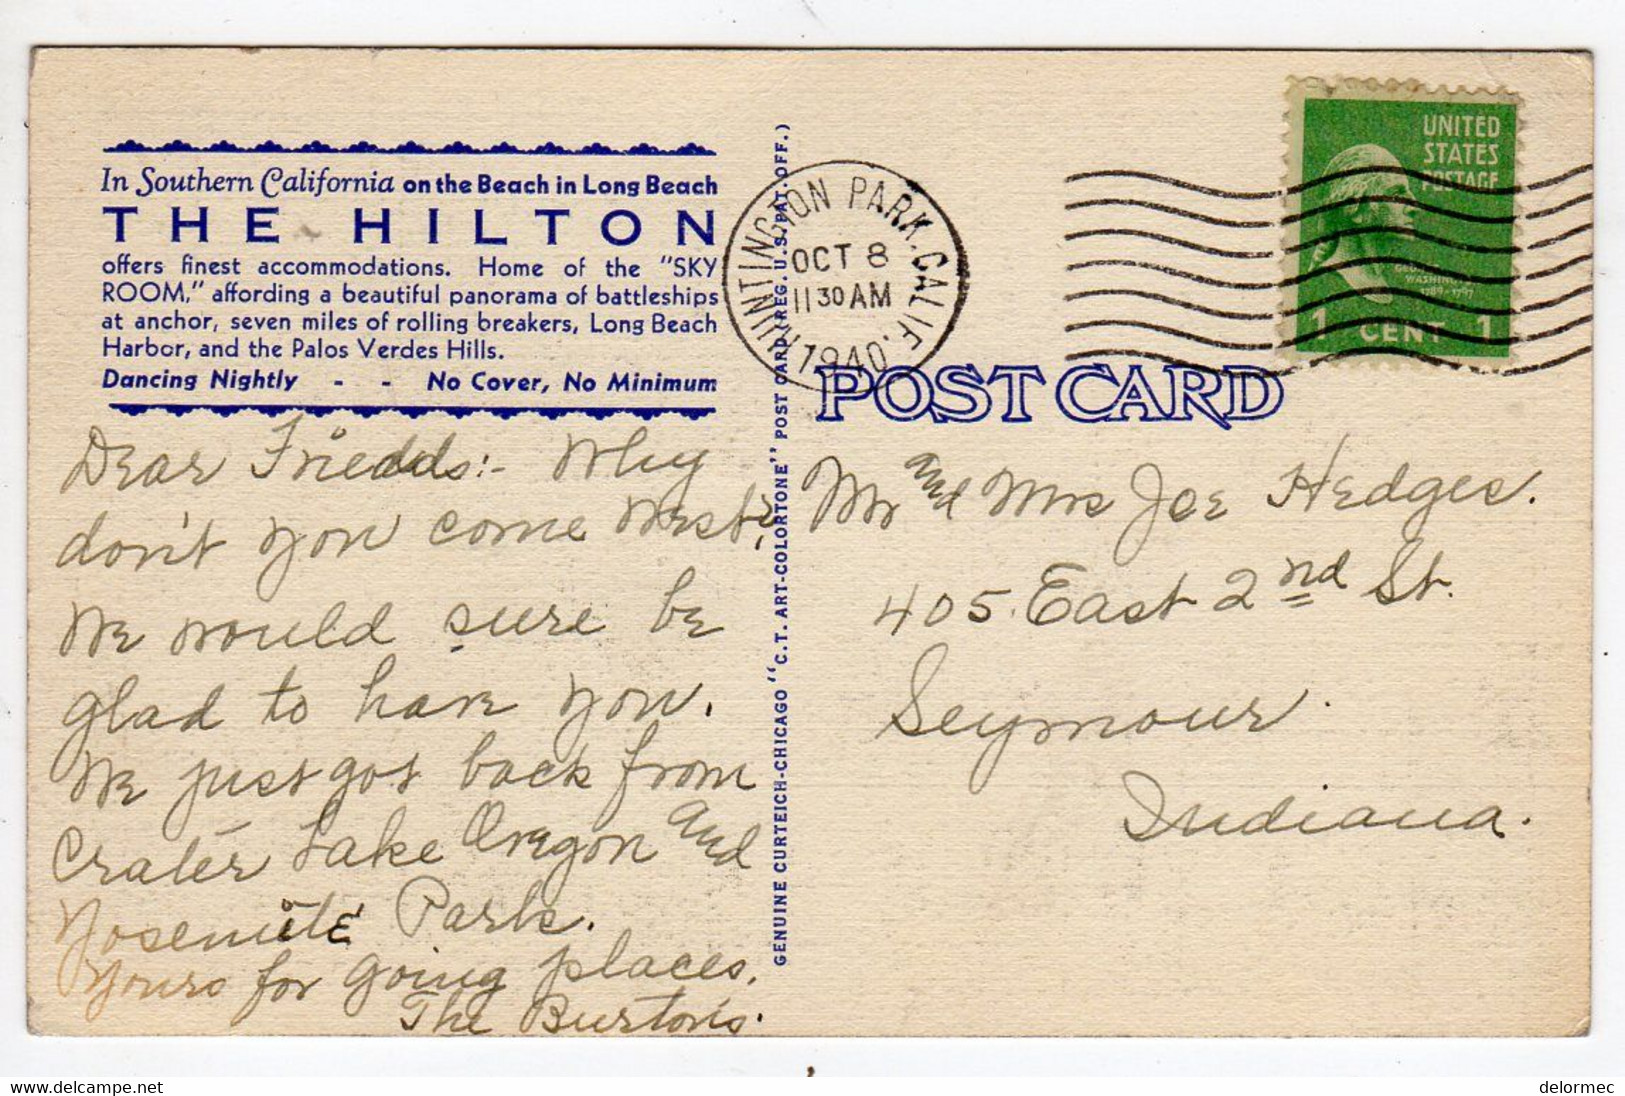 In Southern California on the Beach in Long Beach
THE HILTON
offers finest accommodations. Home of the "SKY
ROOM," affording a beautiful panorama of battleships
at anchor, seven miles of rolling breakers, Long Beach
Harbor, and the Palos Verdes Hills.
Dancing Nightly - - No Cover, No Minimum
Dear Friends:- Why
don't you come West?
We would sure be
glad to have you.
We just got back from
Crater Lake Oregon and
Yosemite Park.
Yours for going places.
The Burton's.
GENUINE CURTEICH-CHICAGO "C.T. ART-COLORTONE" POST CARD (REG. U.S. PAT. OFF.)
HUNTINGTON PARK, CALIF.
OCT 8
11 30 AM
1940
UNITED
STATES
POSTAGE
GEORGE
WASHINGTON
1789-1797
1 CENT 1
POST CARD
Mr and Mrs Joe Hedges.
405. East 2nd St.
Seymour.
Indiana.
hipstamp.com/store/delcampe.net
delormec